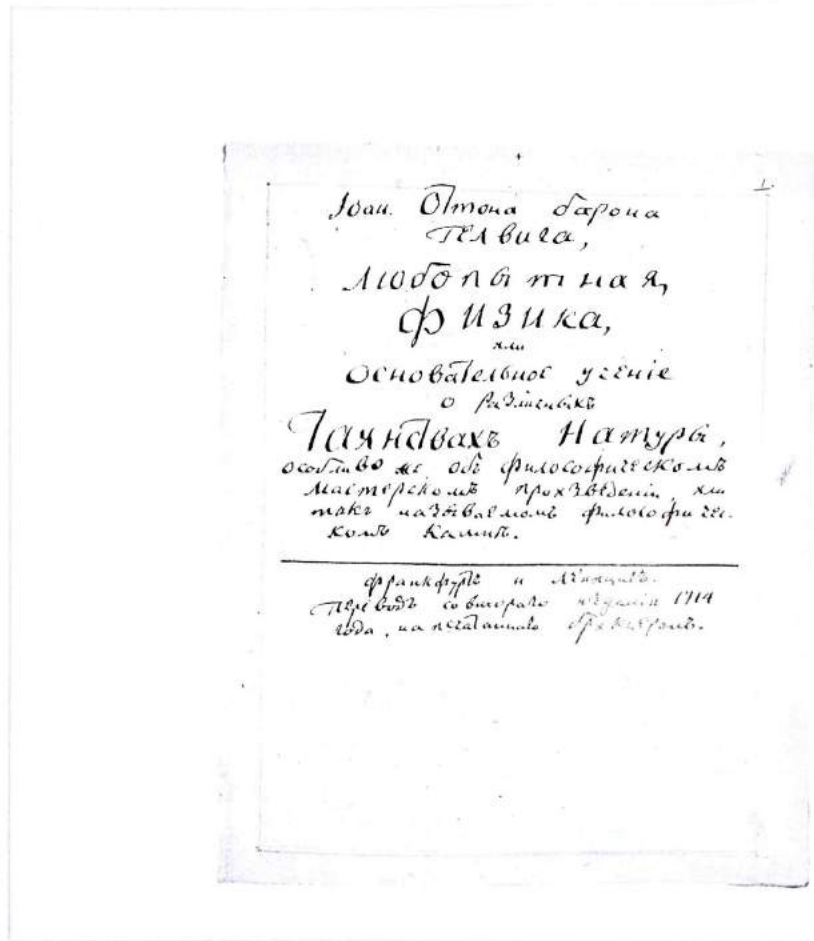 1.
Іоан. Оттона барона
Гелвига,
Любопытная,
Физика,
или
Основательное учение
о различныхъ
Таинствахъ Натуры,
особливо же объ философическомъ
мастерскомъ произведеніи, или
такъ называемомъ философичес-
комъ камнѣ.
Франкфуртъ и Лейпцигъ.
Переводъ со второго изданія 1714
года, напечатанного